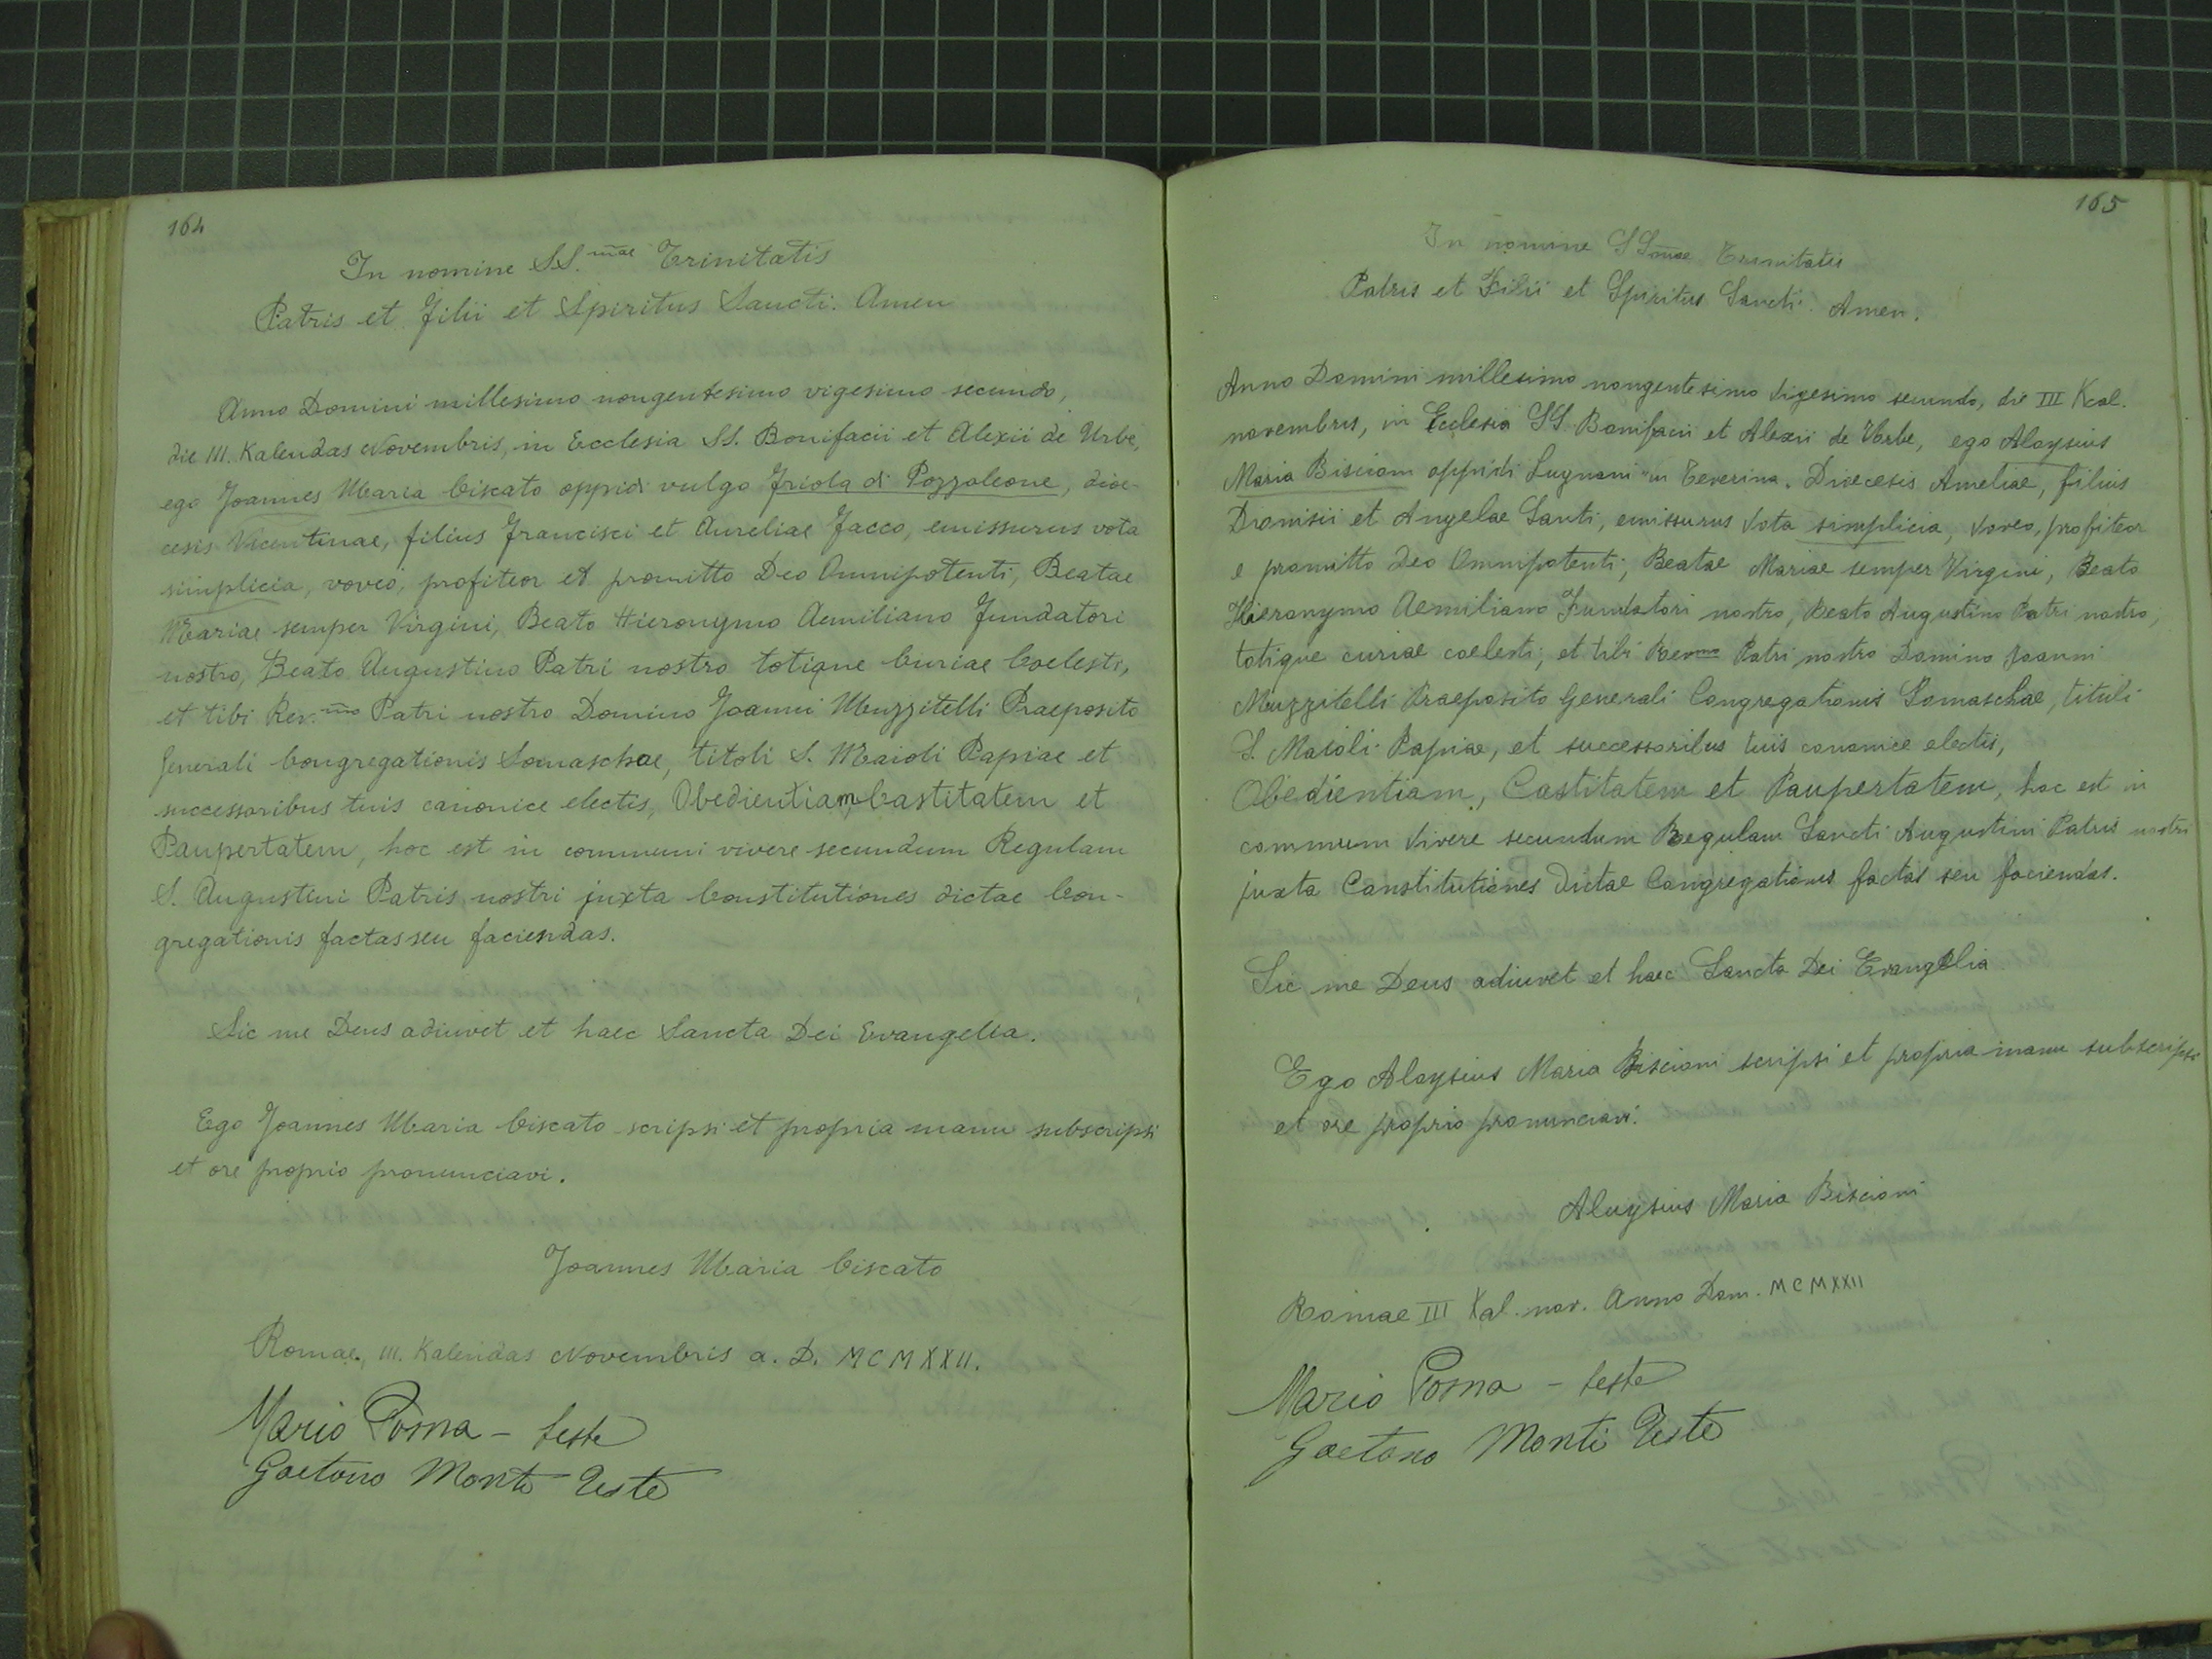 164
In nomine SS.mae Trinitatis
Patris et Filii et Spiritus Sancti. Amen
Anno Domini millesimo nongentesimo vigesimo secundo,
die III. Kalendas Novembris, in Ecclesia SS. Bonifacii et Alexii de Urbe,
ego Joannes Maria Ciscato oppidi vulgo Friola di Pozzoleone, dioe-
cesis Vicentinae, filius Francisci et Aureliae Jacco, emissurus vota
simplicia, voveo, profiteor et promitto Deo Omnipotenti, Beatae
Mariae semper Virgini, Beato Hieronymo Aemiliano Fundatori
nostro, Beato Augustino Patri nostro totique Curiae Coelesti,
et tibi Rev.mo Patri nostro Domino Joanni Muzzitelli Praeposito
Generali Congregationis Somaschae, titoli S. Maioli Papiae et
successoribus tuis canonice electis, Obedientiam, Castitatem et
Paupertatem, hoc est in communi vivere secundum Regulam
S. Augustini Patris nostri juxta Constitutiones dictae Con-
gregationis factas seu faciendas.
Sic me Deus adiuvet et haec Sancta Dei Evangelia.
Ego Joannes Maria Ciscato scripsi et propria manu subscripsi
et ore proprio pronunciavi.
Joannes Maria Ciscato
Romae, III. Kalendas Novembris a. D. MCMXXII.
Mario Poma - teste
Gaetano Monti Teste
165
In nomine SSmae Trinitatis
Patris et Filii et Spiritus Sancti. Amen.
Anno Domini millesimo nongentesimo vigesimo secundo, die III Kal.
novembris, in Ecclesia SS. Bonifacii et Alexii de Urbe, ego Aloysius
Maria Biscioni oppidi Lugnani in Teverina, Dioecesis Ameliae, filius
Dionisii et Angelae Santi, emissurus vota simplicia, voveo, profiteor
e promitto Deo Omnipotenti, Beatae Mariae semper Virgini, Beato
Hieronymo Aemiliano Fundatori nostro, Beato Augustino Patri nostro,
totique curiae coelesti, et tibi Revmo Patri nostro Domino Joanni
Muzzitelli Praeposito Generali Congregationis Somaschae, tituli
S. Maioli Papiae, et successoribus tuis canonice electis,
Obedientiam, Castitatem et Paupertatem, hoc est in
communi vivere secundum Regulam Sancti Augustini Patris nostri
juxta Constitutiones dictae Congregationis factas seu faciendas.
Sic me Deus adiuvet et haec Sancta Dei Evangelia
Ego Aloysius Maria Biscioni scripsi et propria manu subscripsi
et ore proprio pronunciavi.
Aloysius Maria Biscioni
Romae III Kal. nov. Anno Dom. MCMXXII
Mario Poma - teste
Gaetano Monti Teste